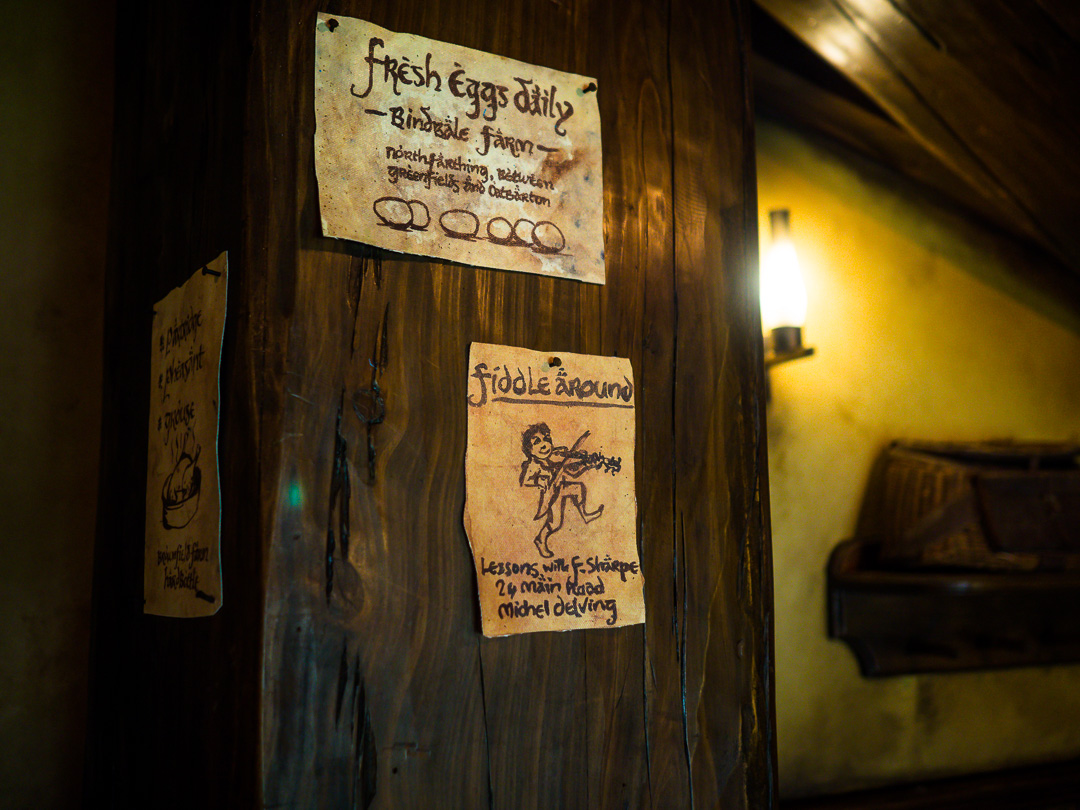 Fresh Eggs daily
— Bindbale Farm —
Northfarthing, Between
greenfields and Oatbarton
Fiddle Around
Lessons with F. Sharpe
24 Main Road
Michel delving
Partridge
Pheasant
grouse